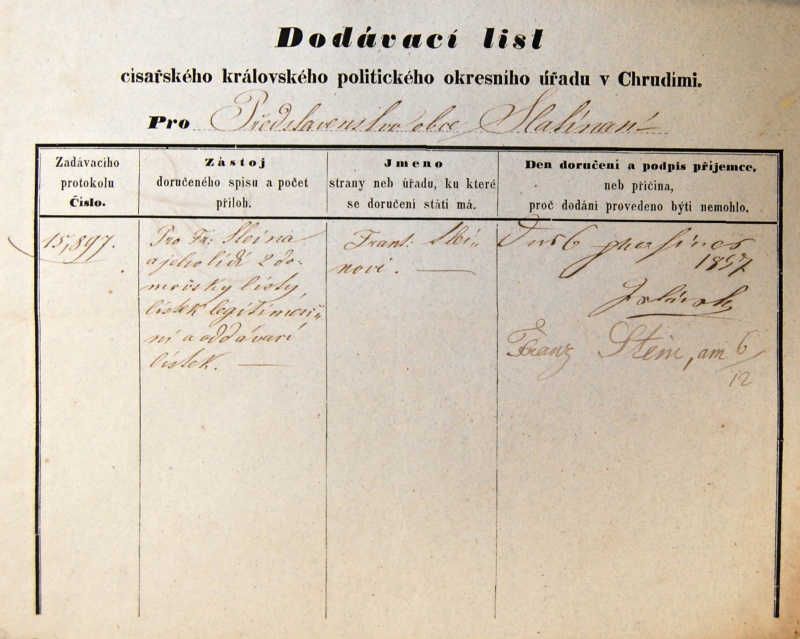 Dodávací list
cisařského královského politického okresního úřadu v Chrudími.
Pro Představenstvo obce Slatinan
Zadávacího
protokolu
Číslo.
Zástoj
doručeného spisu a počet
příloh.
Jmeno
strany neb úřadu, ku které
se doručení státi má.
Den doručení a podpis příjemce,
neb příčina,
proč dodání provedeno býti nemohlo.
15,897.
Pro Fr: Steina
a jeho lidi 2 do-
movsky listy,
lístek legitimač-
ní a oddávací
lístek. —
Frant. Stei-
novi. —
Dne 6 prosince
1857
Franz Stein, am 6/12